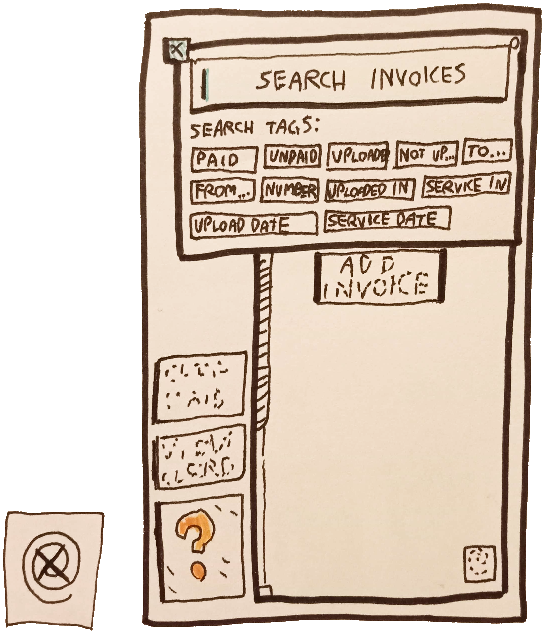 X
SEARCH INVOICES
SEARCH TAGS:
PAID UNPAID UPLOADED NOT UP... TO...
FROM... NUMBER UPLOADED IN SERVICE IN
UPLOAD DATE SERVICE DATE
ADD
INVOICE
VIEW
?